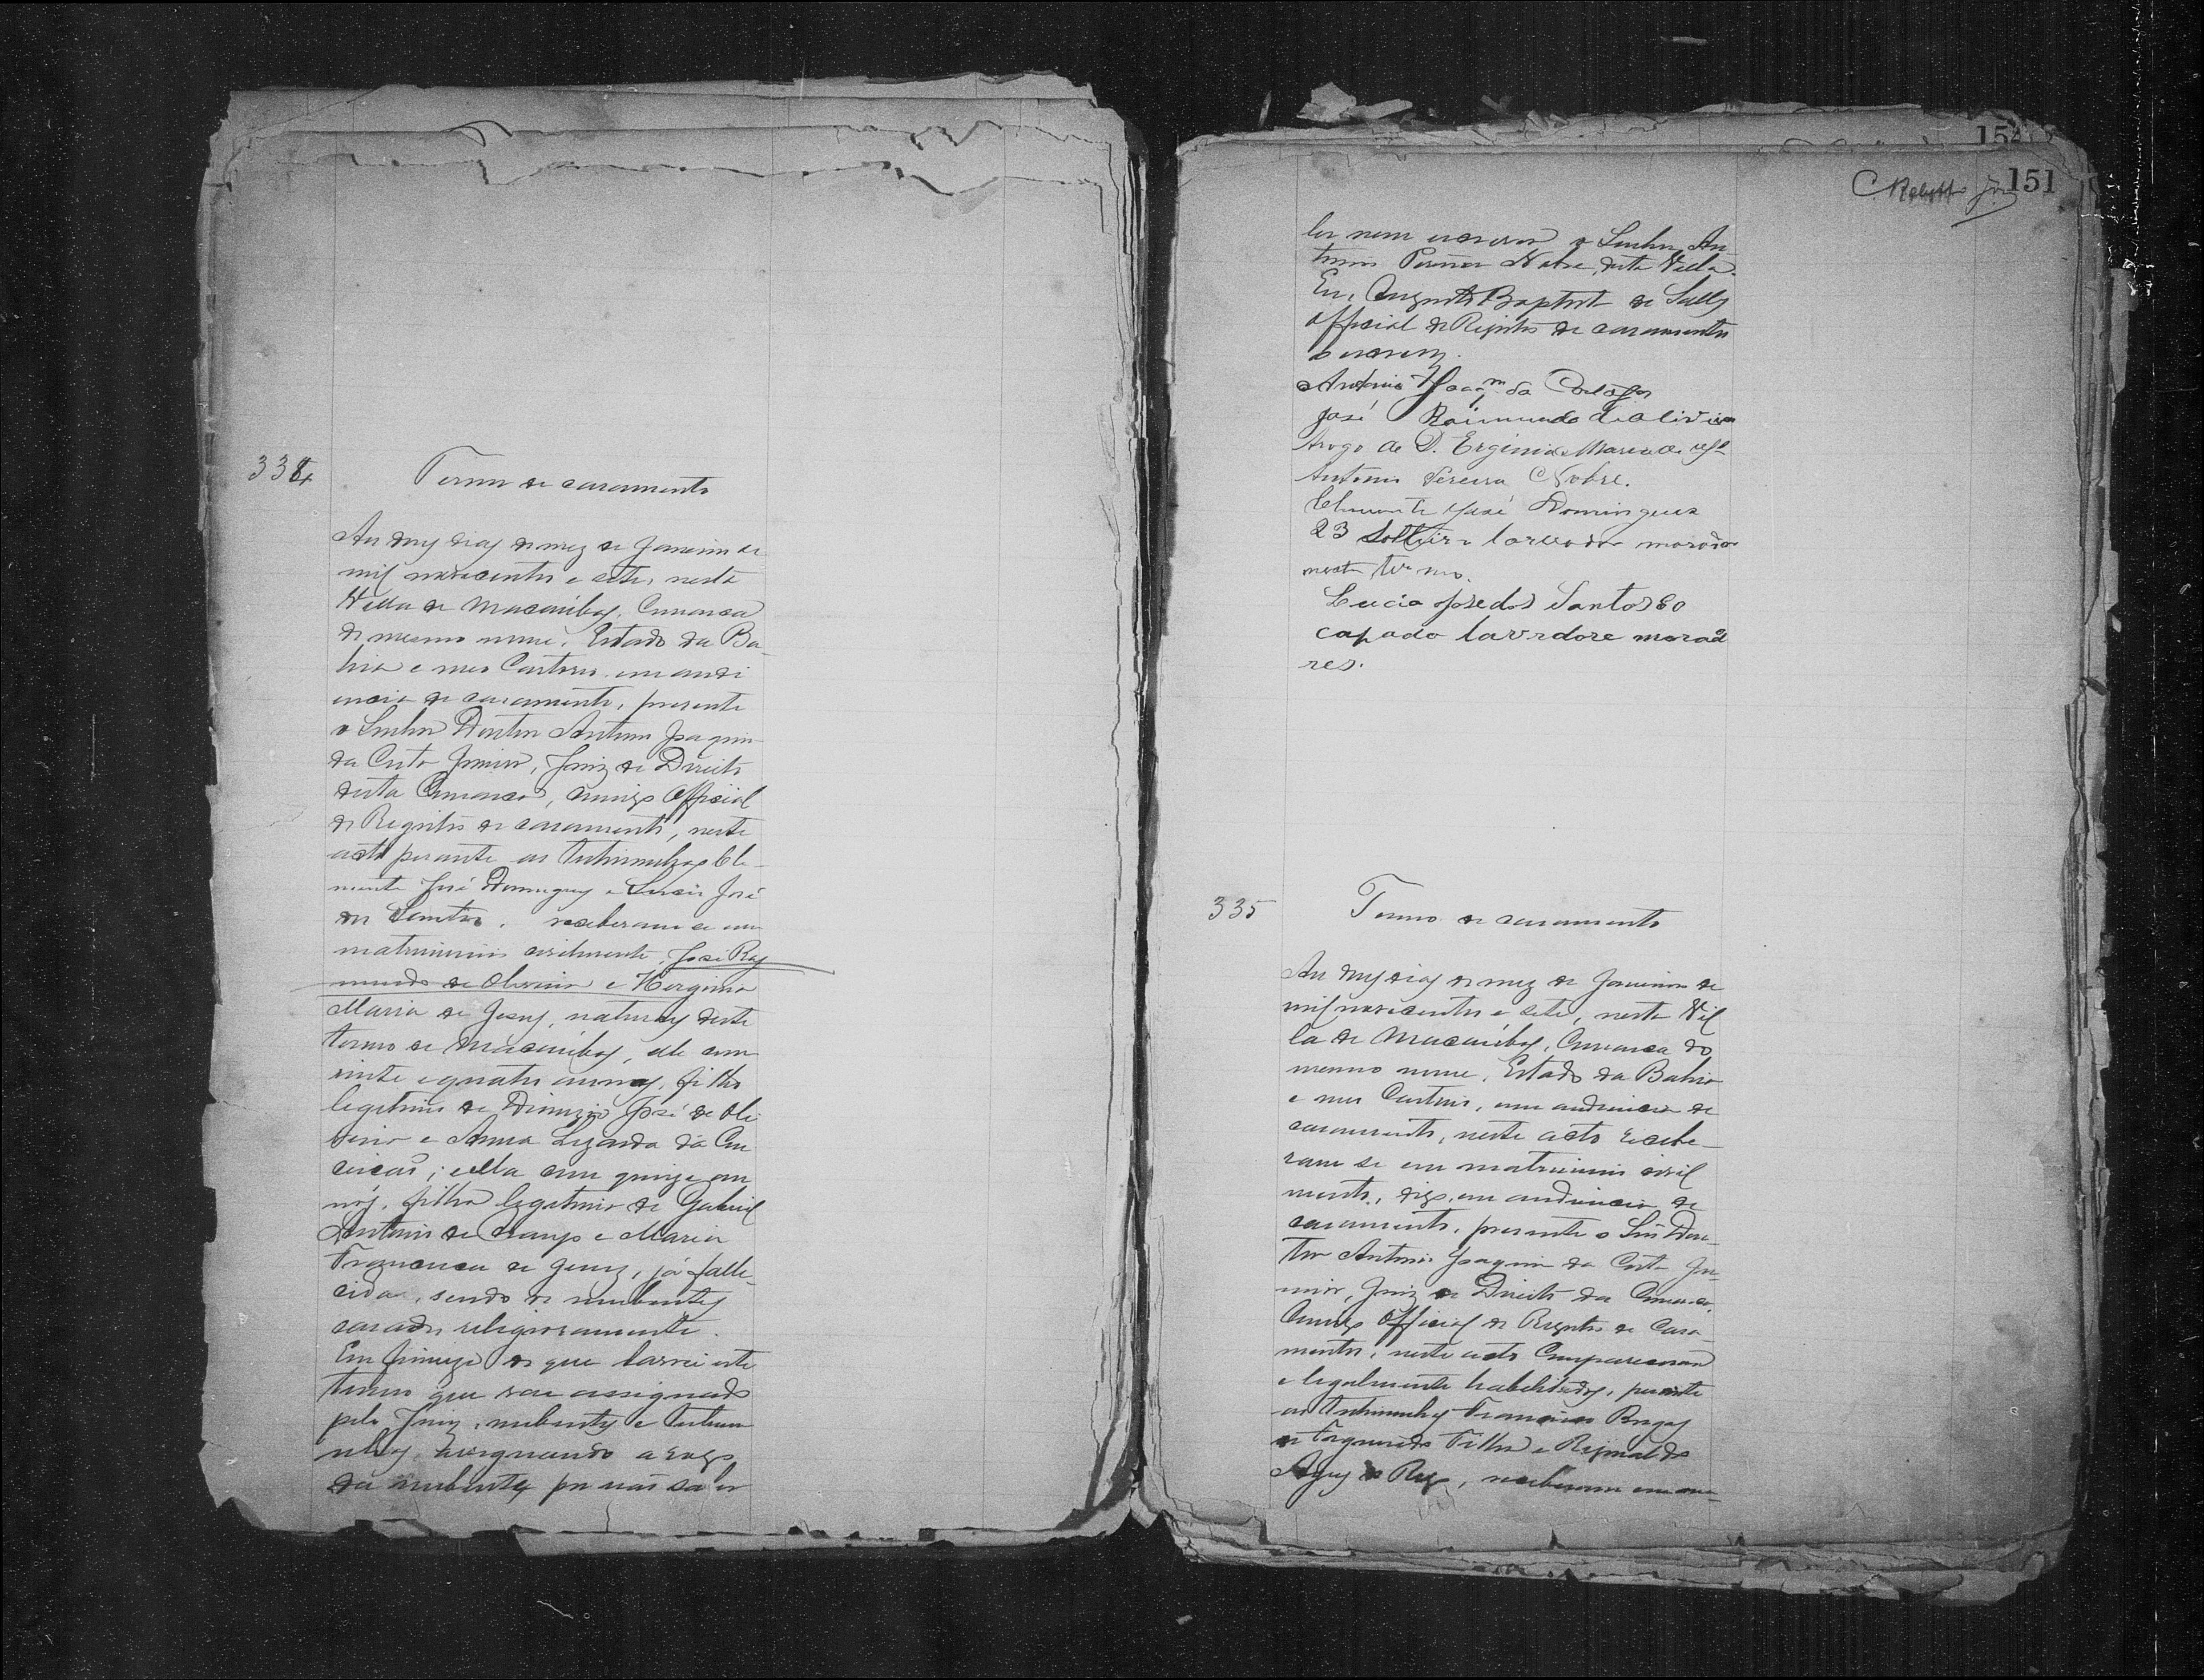 334
Termo de casamento
Aos dez dias do mez de Janeiro de
mil novecentos e sete, nesta
Villa de Macaúbas, Comarca
do mesmo nome, Estado da Ba-
hia e meo Cartorio, em audi
encia de casamento, presente
o Senhor Doutor Antonio Joaquim
da Costa Junior, Juiz de Direito
desta Comarca, comigo official
do Registro de casamento, neste
acto perante as testimunhas Cle-
mente José Domingues e Lucio José
dos Santos, receberam-se em
matrimonio civilmente, José Ray
mundo de Oliveira e Herginia
Maria de Jesus, naturaes deste
termo de Macaúbas, elle com
vinte e quatro annos, filho
legitimo de Dionizio José de Oli
veira e Anna Lizarda da Con
ceicaõ; ella com quinze an
nos, filha legitima de Gabriel
Antonio de Araujo e Maria
Francisca de Jesus, já falle-
cida, sendo os nubentes
casados religiosamente.
Em firmeza do que lavrei este
termo que vae assignado
pelo Juiz, nubentes e testimu
nhas, assignando a rogo
da nubente, por não saber
151
151
C. Rabello Jor
ler nem escrever o Senhor An
tonio Pereira Nobre, desta Villa.
Eu, Augusto Baptista de Salles
official do Registro de casamentos
o escrevy.
Antonio Joaqm da Costa Jor
José Raimundo de Oliveira
Arogo de D. Erginia Maria de
Antonio Pereira Nobre.
Clemente José Domingues
23 Solteiro lavrador morador
neste termo.
Lucio José dos Santos 60
capado lavrdore morad
res.
335
Termo de casamento
Aos dez dias do mez de Janeiro de
mil novecentos e sete, nesta Vil
la de Macaúbas, Comarca do
mesmo nome, Estado da Bahia
e meo Cartorio, em audiencia de
casamento, neste acto recebe-
ram se em matrimonio civil
mente, digo, em audiencia de
casamento, presente o Snr Dou-
tor Antonio Joaquim da Costa Ju-
nior, Juiz de Direito da Comarca,
Comigo Official do Registro de Casa-
mentos, neste acto Compareceram
e legalmente habilitados, perante
as testimunhas Francisco Borges
de Figueredo Filho e Reginaldo
Ayres do Rego, receberam em ma-